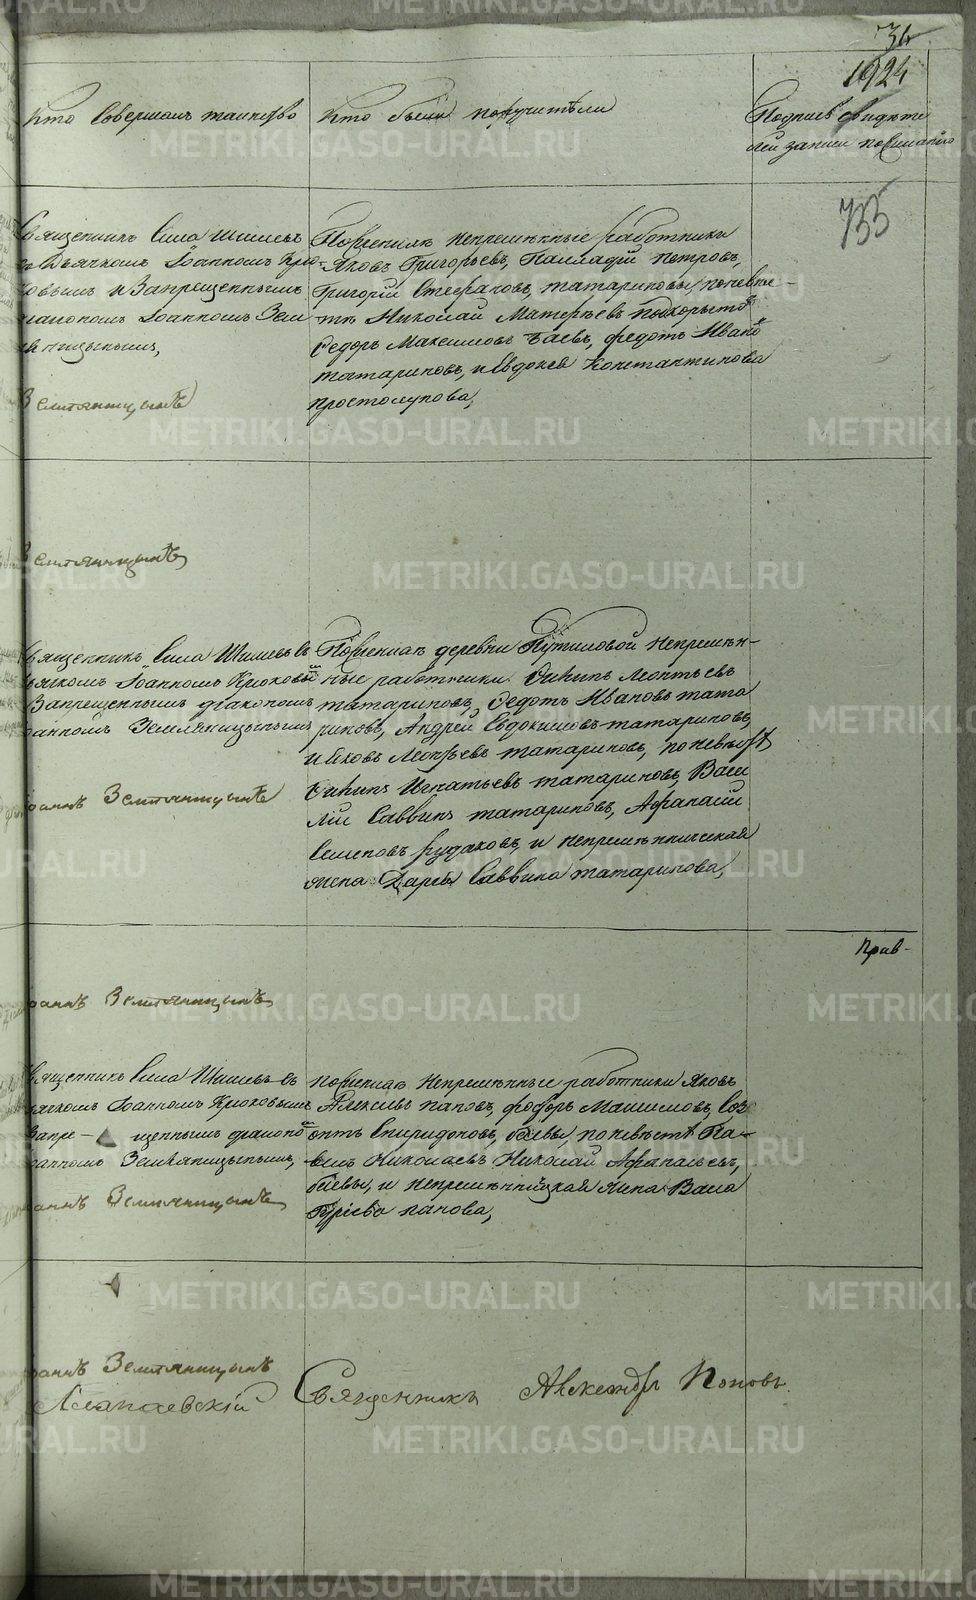 34
1924
Кто совершал таинство
Кто были поручители
Подпись свидѣте
лей записи по желанію
755
Священникъ Сила Шишевъ
съ Дьячкомъ Іоанномъ Крю-
ковымъ и Запрещеннымъ
діакономъ Іоанномъ Зем
ляницынымъ,
Земляницынъ
По женихѣ непремѣнные работники
Яковъ Григорьевъ, Палладій Петровъ,
Григорій Стефановъ, татариновы, по невѣс-
тѣ Николай Матвѣевъ
Федоръ Максимовъ Баевъ, Федотъ Ивановъ
татариновъ, и Евдокея Константинова
простолупова,
Земляницынъ
Священникъ Сила Шишевъ съ
дьячкомъ Іоанномъ Крюковымъ
Запрещеннымъ діакономъ
Іоанномъ Земляницынымъ
Іоаннъ Земляницынъ
По женихѣ деревни Путиловой непремѣн-
ные работники Онипъ Леонтьевъ
татариновъ, Федотъ Ивановъ тата
риновъ, Андрей Евдокимовъ татариновъ,
и Яковъ Леонтьевъ татариновъ, по невѣстѣ
Онипъ Игнатьевъ татариновъ, Васи
лій Саввинъ татариновъ, Афанасій
Семеновъ рудаковъ, и непремѣнническая
жена Дарья Саввина татаринова,
Прав-
Іоаннъ Земляницынъ
Священникъ Сила Шишевъ съ
дьячкомъ Іоанномъ Крюковымъ
Запре- щеннымъ діакономъ
Іоанномъ Земляницынымъ,
Іоаннъ Земляницынъ
по женихѣ непремѣнные работники Яковъ
Алексѣевъ пановъ, Федоръ Максимовъ, Соз
онтъ Спиридоновъ, баевы, по невѣстѣ Па-
велъ Николаевъ Николай Афанасьевъ,
баевы, и непремѣнницкая жена Васса
панова,
Іоаннъ Земляницынъ
Алапаевскій Священникъ Александръ Поповъ.
METRIKI.GASO-URAL.RU